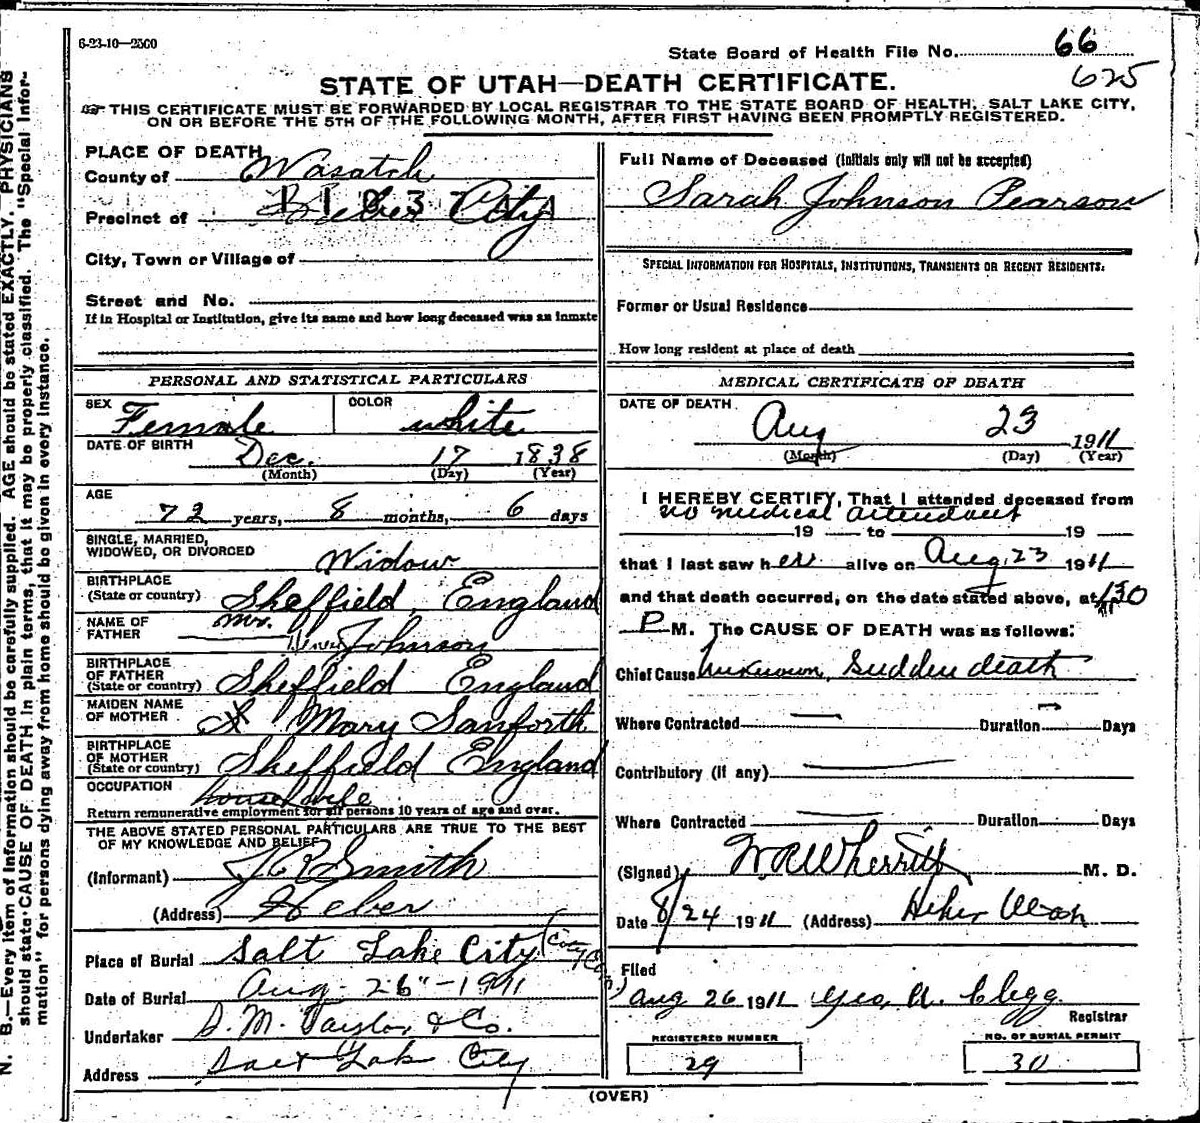 6-23-10—2500
State Board of Health File No. 66
625
STATE OF UTAH—DEATH CERTIFICATE.
THIS CERTIFICATE MUST BE FORWARDED BY LOCAL REGISTRAR TO THE STATE BOARD OF HEALTH, SALT LAKE CITY,
ON OR BEFORE THE 5TH OF THE FOLLOWING MONTH, AFTER FIRST HAVING BEEN PROMPTLY REGISTERED.
PLACE OF DEATH
County of Wasatch
Precinct of Heber City
City, Town or Village of
Street and No.
If in Hospital or Institution, give its name and how long deceased was an inmate
PERSONAL AND STATISTICAL PARTICULARS
SEX Female COLOR white
DATE OF BIRTH Dec. 17 1838
(Month) (Day) (Year)
AGE
72 years, 8 months, 6 days
SINGLE, MARRIED,
WIDOWED, OR DIVORCED Widow
BIRTHPLACE
(State or country) Sheffield, England
NAME OF
FATHER Mr. Johnson
BIRTHPLACE
OF FATHER
(State or country) Sheffield England
MAIDEN NAME
OF MOTHER Mary Sanforth
BIRTHPLACE
OF MOTHER
(State or country) Sheffield England
OCCUPATION housewife
Return remunerative employment for all persons 10 years of age and over.
THE ABOVE STATED PERSONAL PARTICULARS ARE TRUE TO THE BEST
OF MY KNOWLEDGE AND BELIEF
(Informant) J R Smith
(Address) Heber
Place of Burial Salt Lake City (City Cem)
Date of Burial Aug. 26" - 1911
Undertaker S. M. Taylor & Co.
Address Salt Lake City
Full Name of Deceased (Initials only will not be accepted)
Sarah Johnson Pearson
SPECIAL INFORMATION FOR HOSPITALS, INSTITUTIONS, TRANSIENTS OR RECENT RESIDENTS:
Former or Usual Residence
How long resident at place of death
MEDICAL CERTIFICATE OF DEATH
DATE OF DEATH
Aug 23 1911
(Month) (Day) (Year)
I HEREBY CERTIFY, That I attended deceased from
no medical attendant
19 to 19
that I last saw her alive on Aug 23 1911
and that death occurred, on the date stated above, at 1 30
P M. The CAUSE OF DEATH was as follows:
Chief Cause Unknown, Sudden death
Where Contracted — Duration — Days
Contributory (if any) —
Where Contracted — Duration Days
(Signed) W. R. Wherritt M. D.
Date 8/24 1911 (Address) Heber Utah
Filed
Aug 26 1911 Geo. A. Clegg
Registrar
REGISTERED NUMBER
29
NO. OF BURIAL PERMIT
30
(OVER)
N. B.—Every item of information should be carefully supplied. AGE should be stated EXACTLY. PHYSICIANS
should state CAUSE OF DEATH in plain terms, that it may be properly classified. The "Special Infor-
mation" for persons dying away from home should be given in every instance.